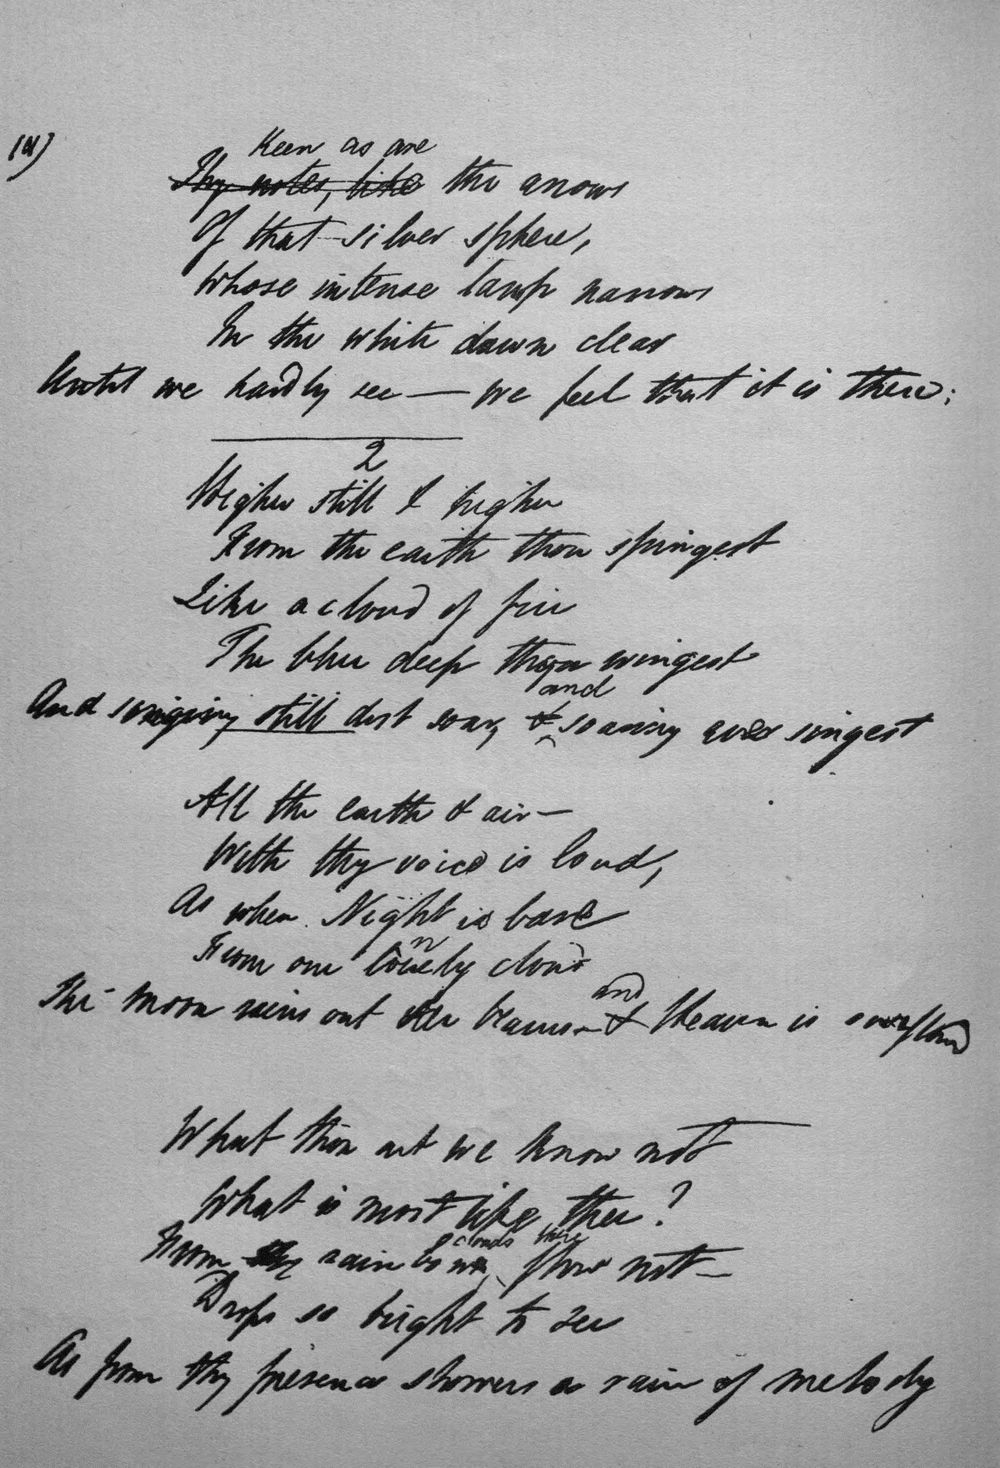 Keen as are
Thy notes, like the arrows
Of that silver sphere,
Whose intense lamp narrows
In the white dawn clear
Until we hardly see — we feel that it is there;
2
Higher still & higher
From the earth thou springest
Like a cloud of fire
The blue deep thou wingest
and
And singing still dost soar, & soaring ever singest
All the earth & air —
With thy voice is loud,
As when Night is bare
From one lonely cloud
and
The moon rains out her beams - & Heaven is overflowd
What thou art we know not
What is most like thee?
clouds there
From rainbow flow not —
Drops so bright to see
As from thy presence showers a rain of melody